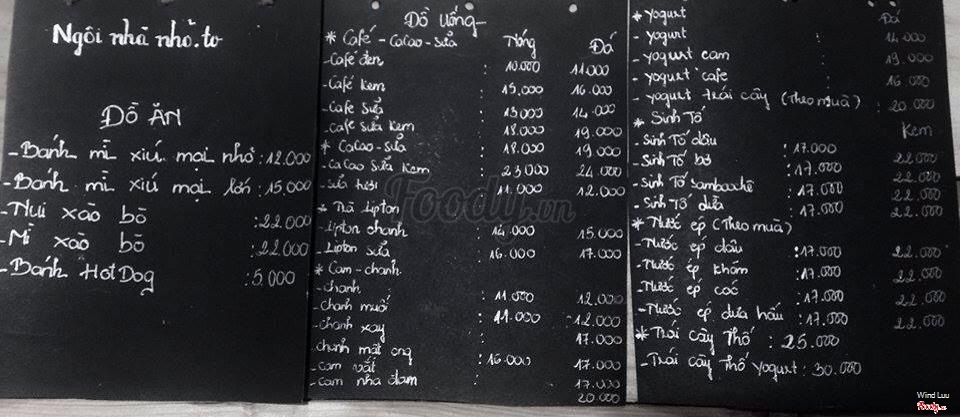 Ngôi nhà nhỏ.to
ĐỒ ĂN
- Bánh mì xíu mại nhỏ : 12.000
- Bánh mì xíu mại lớn : 15.000
- Nui xào bò : 22.000
- Mì xào bò : 22.000
- Bánh HotDog : 5.000
Đồ Uống
* Café - CaCao - Sữa Nóng Đá
- Café đen : 10.000 11.000
- Café kem : 15.000 16.000
- Café Sữa : 13.000 14.000
- Café Sữa Kem : 18.000 19.000
* CaCao - Sữa : 18.000 19.000
- CaCao Sữa Kem : 23.000 24.000
- Sữa tươi : 11.000 12.000
* Trà Lipton
- Lipton chanh : 14.000 15.000
- Lipton sữa : 16.000 17.000
* Cam - chanh
- chanh : 11.000 12.000
- chanh muối : 11.000 12.000
- chanh xay 17.000
- chanh mật ong : 16.000 17.000
- cam vắt 17.000
- cam nha đam 20.000
* Yogurt Đá
- Yogurt : 14.000
- Yogurt cam : 19.000
- Yogurt cafe : 16.000
- Yogurt trái cây (Theo mùa) : 20.000
* Sinh Tố Kem
- Sinh Tố dâu : 17.000 22.000
- Sinh Tố bơ : 17.000 22.000
- Sinh Tố Sambochê : 17.000 22.000
- Sinh Tố dừa : 17.000 22.000
* Nước ép (Theo mùa)
- Nước ép dâu : 17.000 22.000
- Nước ép khóm : 17.000 22.000
- Nước ép cóc : 17.000 22.000
- Nước ép dưa hấu : 17.000 22.000
* Trái cây Thố : 25.000
- Trái cây Thố Yogurt : 30.000
Foody.vn
Wind Luu
Foody.vn